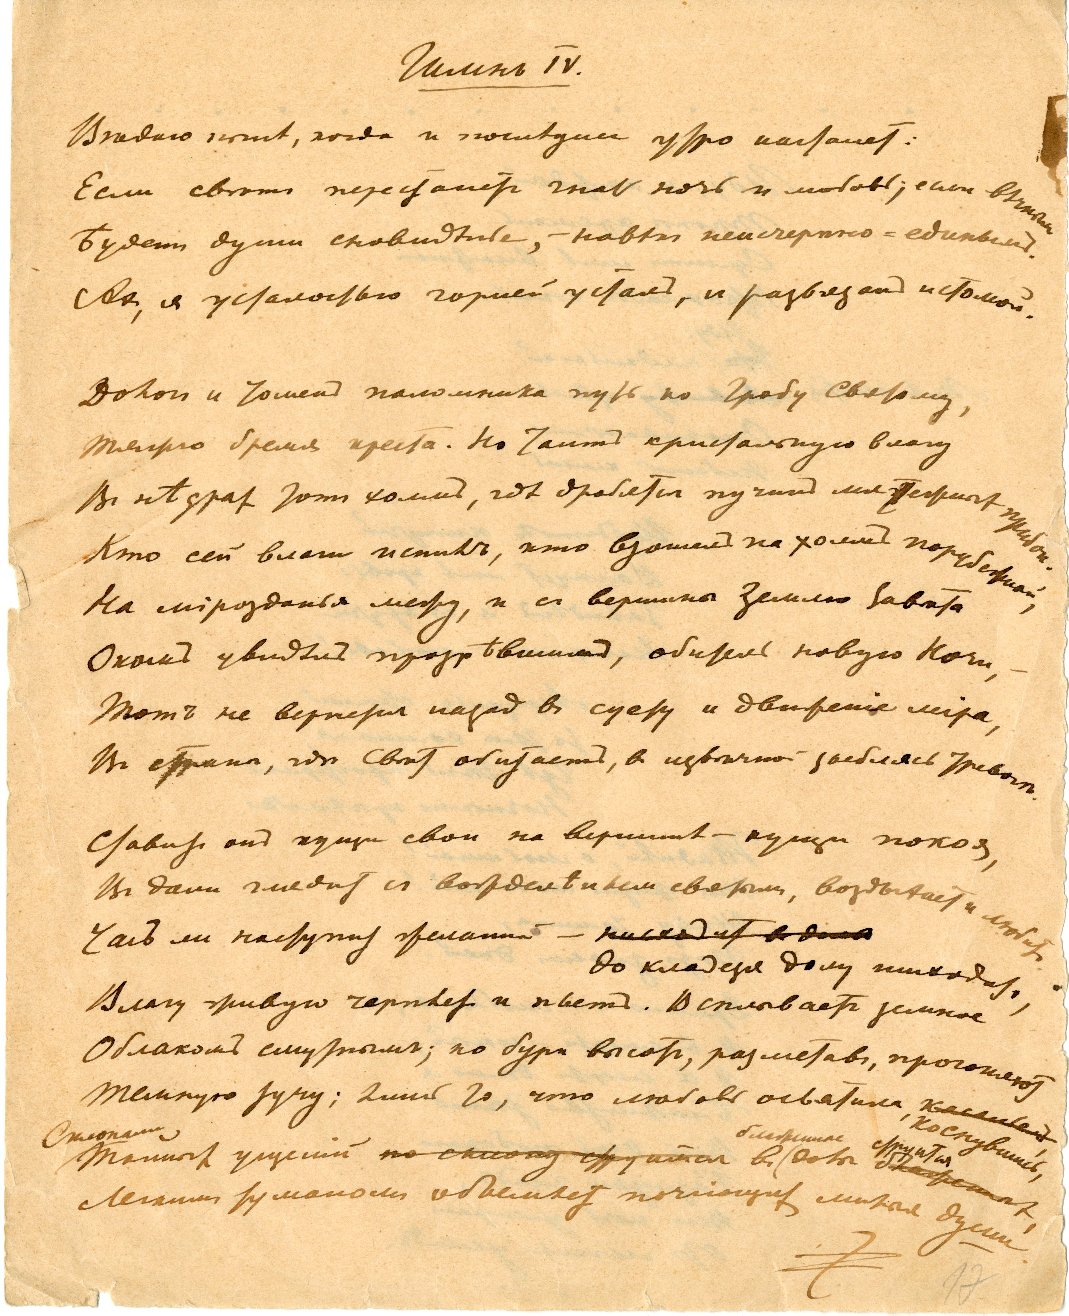 Гимнъ IV.
Вѣдаю нынѣ, когда и послѣднее утро настанетъ:
Если свѣтъ перестанетъ гнать ночь и любовь; если вѣчнымъ
Будетъ души сновидѣнье, – навѣки неисчерпно-единымъ.
Ах, я усталостью горней усталъ, и развязанъ истомой.
Дологъ и томенъ паломника путь ко Гробу Святому,
Тяжко бремя креста. Но таитъ кристальную влагу
Въ нѣдрах тотъ холмъ, гдѣ дробятся пучинъ мятежных прибои.
Кто сей влаги испилъ, кто взошелъ на холмъ порубежный,
На мірозданья межу, и съ вершины Землю Завѣта
Окомъ увидѣлъ прозрѣвшимъ, обитель новую Ночи, –
Тотъ не вернется назад въ суету и движеніе міра,
Въ страны, гдѣ Свѣтъ обитаетъ, в извѣчной зыблясь тревогѣ.
Ставитъ онъ кущи свои на вершинѣ – кущи покоя,
Въ дали глядитъ съ вожделѣньем святымъ, воздыхаетъ и любитъ.
Часъ ли наступитъ желанный – нисходитъ в долы
до кладезя долу нисходитъ,
Влагу живую черпаетъ и пьетъ. Всплываетъ земное
Облакомъ смутнымъ; но бури высотъ, разметавъ, прогоняютъ
Темную тучу; лишь то, что любовь освятила, коснувшись,
Склонами блаженные струится
Тайных ущелій по склону струится въ долы
Легкимъ туманомъ объемлетъ почіющих милыя души.
17